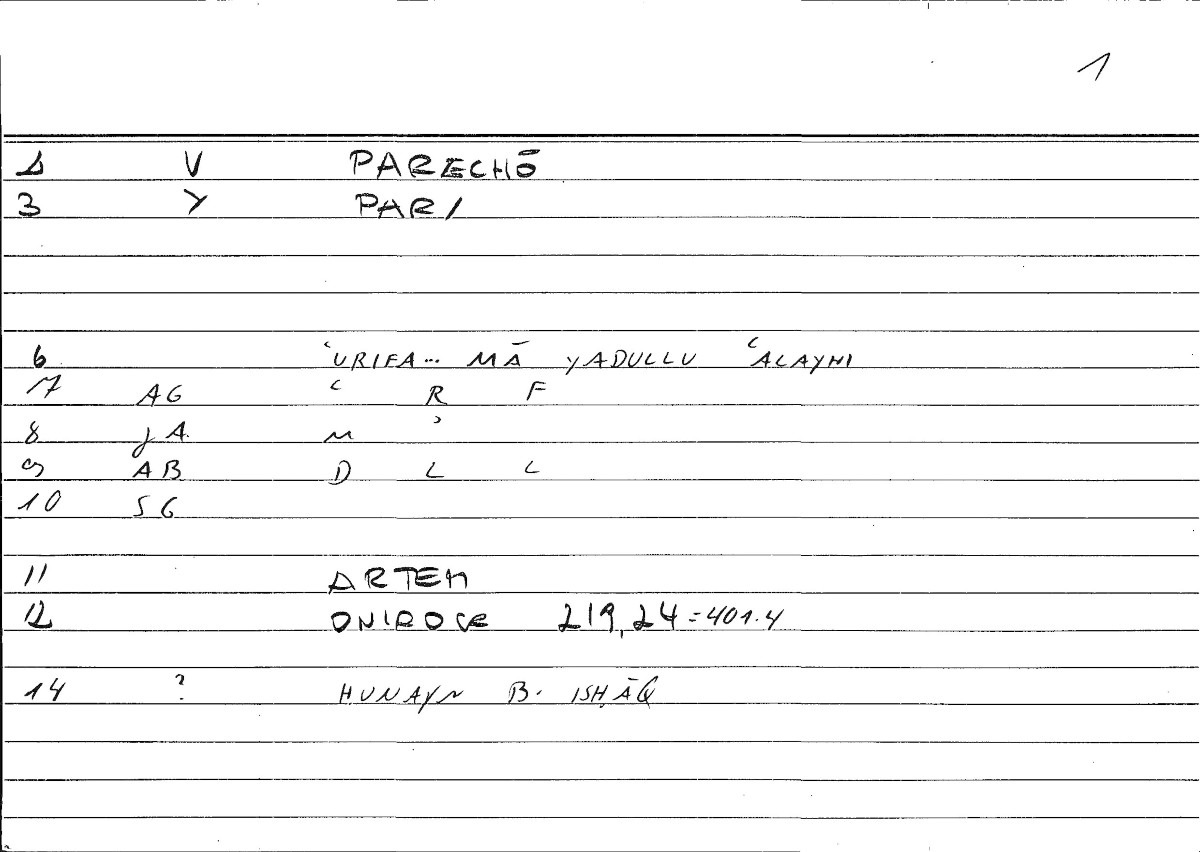 1
1 V PARECHŌ
3 Y PAR/
6 ʿURIFA... MĀ YADULLU ʿALAYHI
7 AG ʿ R F
8 JA. M ʾ
9 AB D L L
10 SG
11 ARTEM
12 ONIROCR 219,24=401.4
14 ? HUNAYN B. ISḤĀQ